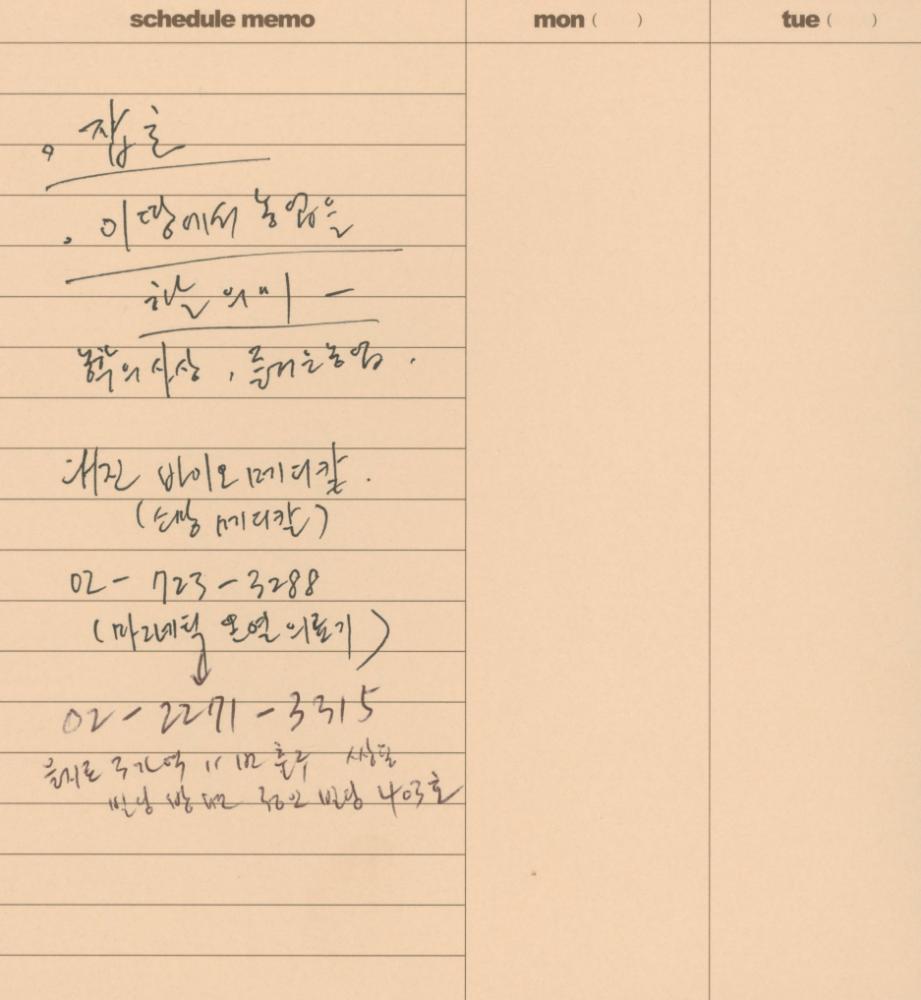 schedule memo
mon ( )
tue ( )
. 잡초
. 이 땅에서 농업을
한 의미 —
농학의 사상, 즐거운 농업.
대진 바이오 메디칼.
( 메디칼)
02 - 723 - 3288
(마그네틱 온열 의료기)
02 - 2271 - 3315
을지로 3가역 11번 출구
빌딩 빌딩 403호